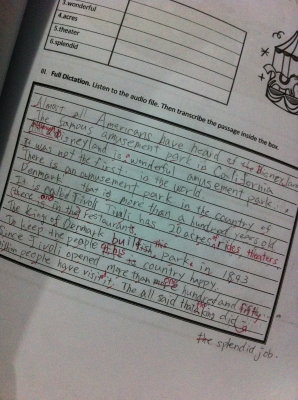 3.wonderful
4.acres
5.theater
6.splendid
III. Full Dictation. Listen to the audio file. Then transcribe the passage inside the box.
Almost all Americans have heard of the Disneyland
the famous amusement park in California
Disneyland is wonderful amusement park.
It was not the first in the world.
There is an amusement park in the country of
Denmark that is more than a hundred years old
It is called Tivoli. Tivoli has 20 acres rides theaters,
and restaurants
The King of Denmark built this park in 1893
To keep the people of his country happy.
Since Tivoli opened more than one hundred and fifty
million people have visit it. The all said that king did
the splendid job.